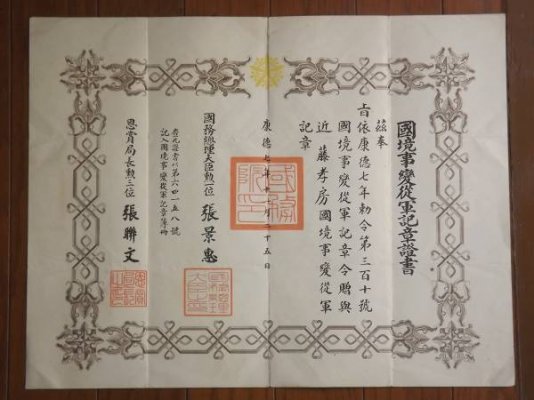 國境事變從軍記章證書
茲奉
上諭依康德七年勅令第三百十號
國境事變從軍記章令贈與
近藤孝房國境事變從軍
記章
康德七年十一月二十五日
國務總理大臣勲一位張景惠
查此證書以第六四一五八號
記入國境事變從軍記章簿冊
恩賞局長勲三位張聯文